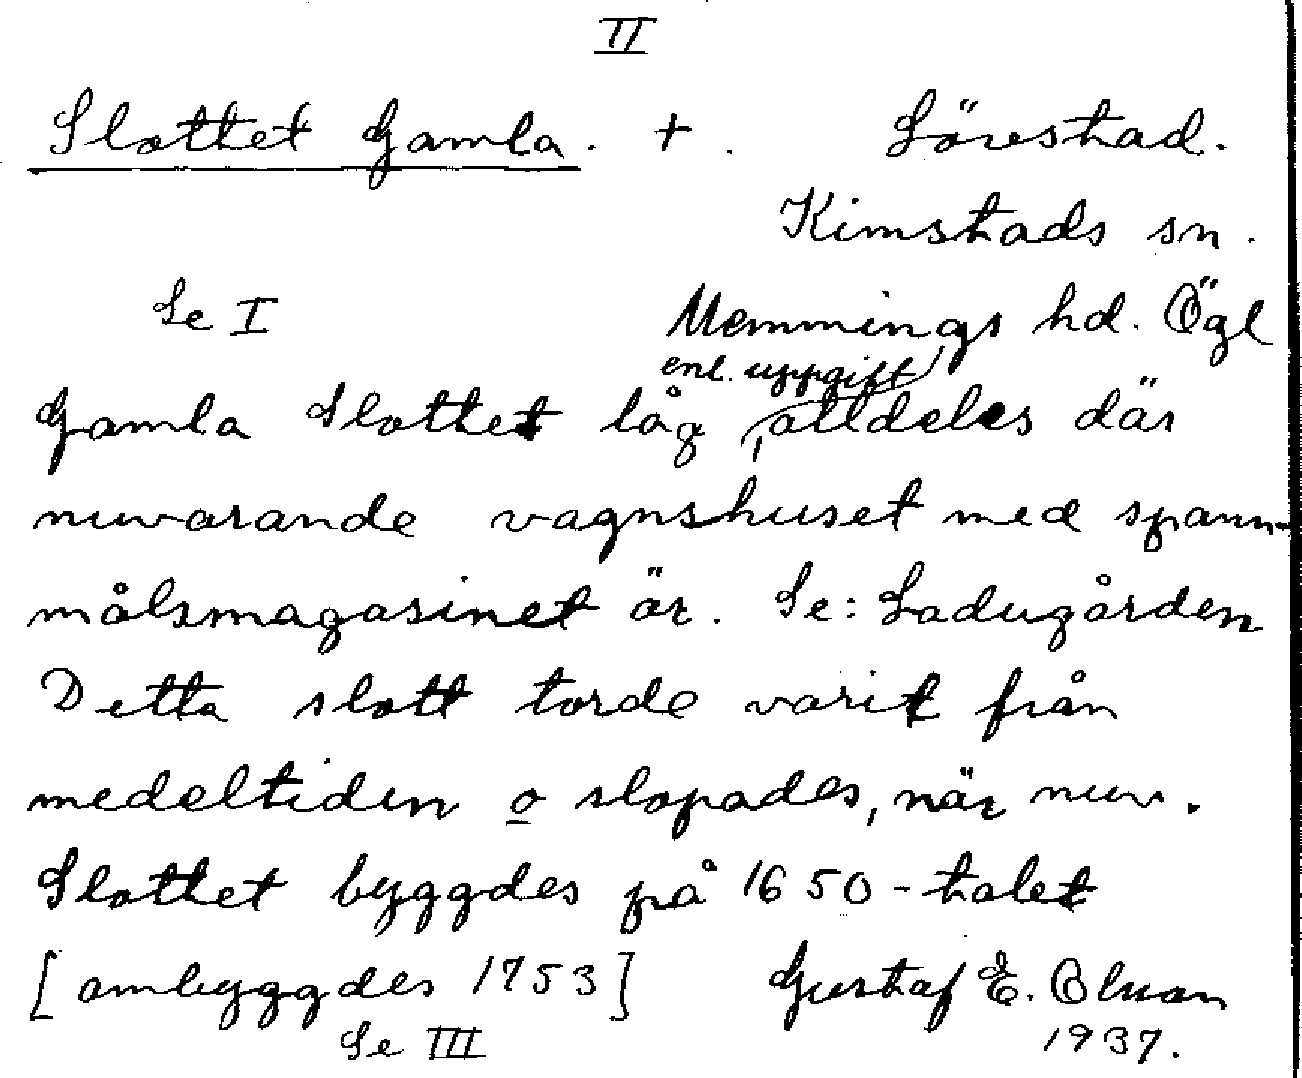 II
Slottet Gamla. + . Lövestad.
Kimstads sn.
Se I Memmings hd. Ögl
enl. uppgift
Gamla Slottet låg alldeles där
nuvarande vagnshuset med spann-
målsmagasinet är. Se: Ladugården
Detta slott torde varit från
medeltiden o slopades, när nuv.
Slottet byggdes på 1650-talet
[ombyggdes 1753] Gustaf E. Olsson
Se III 1937.